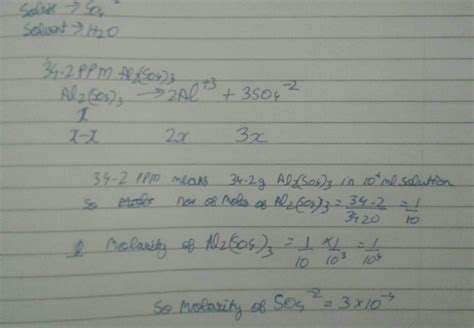 Solute → SO4
Solvent → H2O
34.2 PPM Al2(SO4)3
Al2(SO4)3 → 2Al+3 + 3SO4-2
x
x-x 2x 3x
34-2 PPM means 34.2g Al2(SO4)3 in 10⁶ ml solution
So no. of Moles of Al2(SO4)3 = 34-2/3420 = 1/10
Molarity of Al2(SO4)3 = 1/10 × 1/10³ = 1/10⁴
So Molarity of SO4-2 = 3×10-4